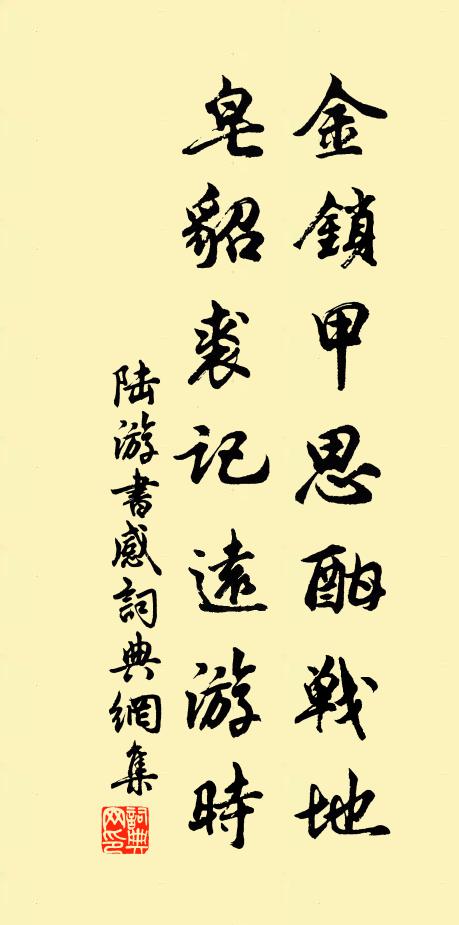 金鎖甲思酣戰地
皂貂裘記遠游時
陆游書感詞典網集
詞典网印